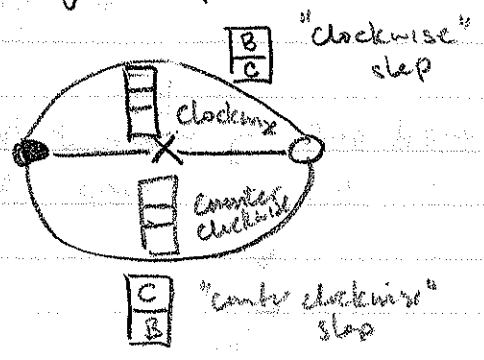 B
C
"clockwise"
step
clockwise
counter
clockwise
C
B
"counter clockwise"
step